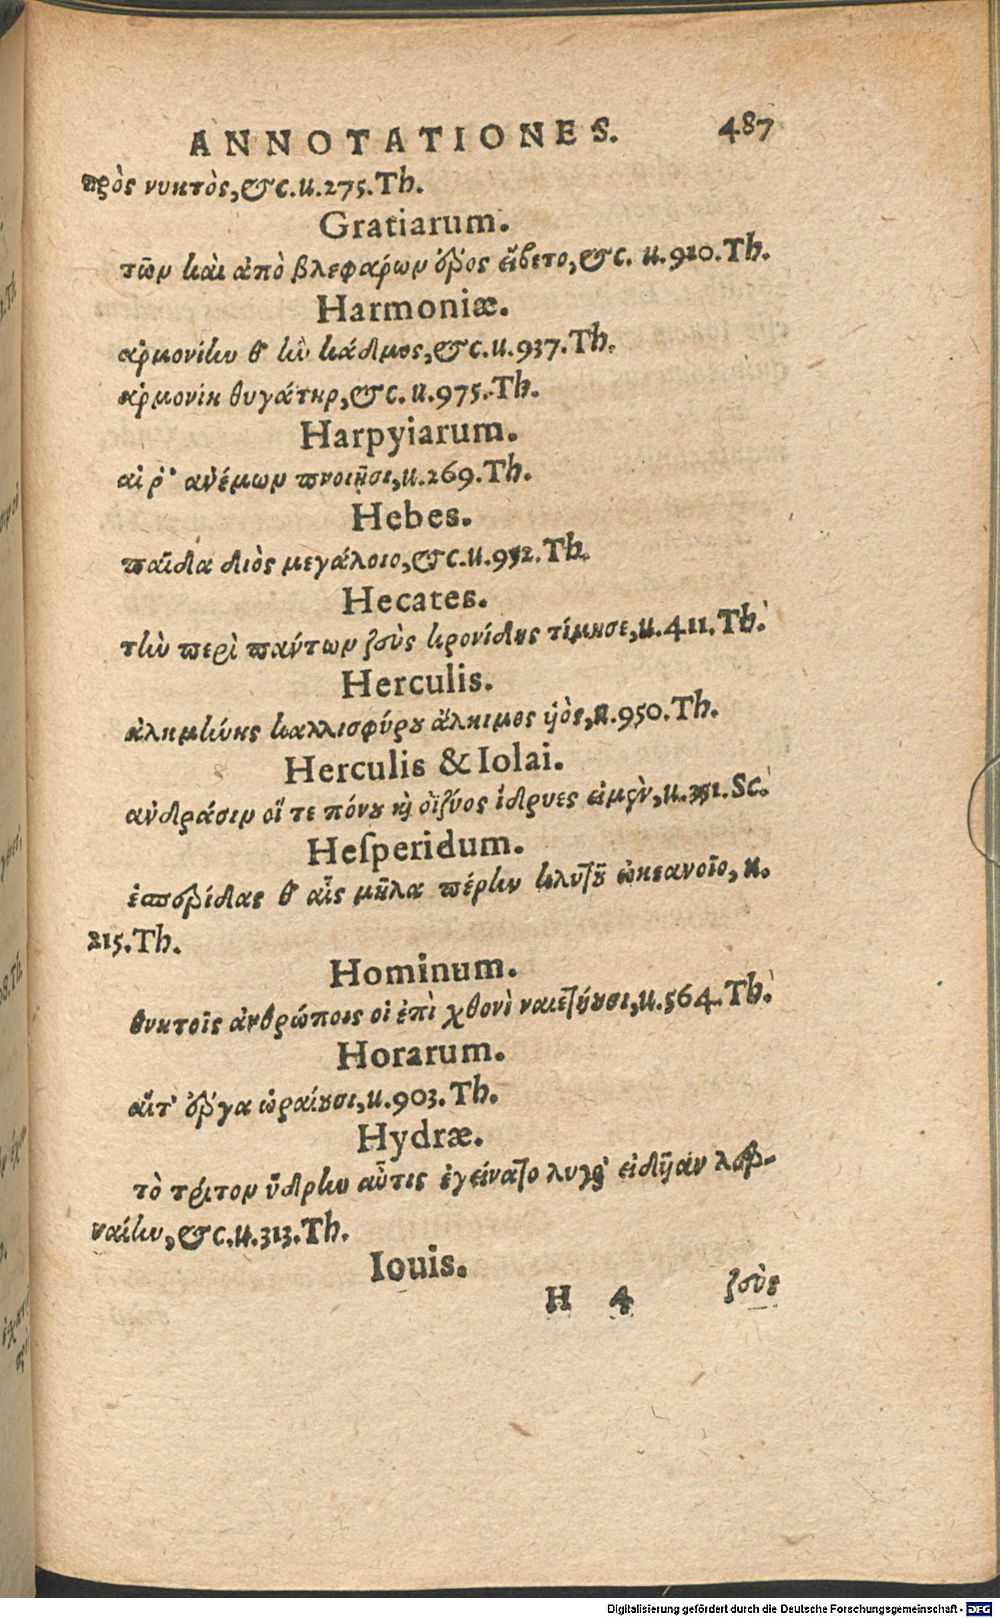 ANNOTATIONES. 487
πρὸς νυκτὸς, &c. u. 275. Th.
Gratiarum.
τῶν καὶ ἀπὸ βλεφάρων ἔρος εἴβετο, &c. u. 910. Th.
Harmoniæ.
ἁρμονίην θ' ἣν κάδμος, &c. u. 937. Th.
ἁρμονίη θυγάτηρ, &c. u. 975. Th.
Harpyiarum.
αἵ ῥ' ἀνέμων πνοιῇσι, u. 269. Th.
Hebes.
παῖδα διὸς μεγάλοιο, &c. u. 952. Th.
Hecates.
τὴν περὶ πάντων ζεὺς κρονίδης τίμησε, u. 411. Th.
Herculis.
ἀλκμήνης καλλισφύρου ἄλκιμος υἱὸς, u. 950. Th.
Herculis & Iolai.
ἀνδράσιν οἵ τε πόνου καὶ ὀϊζύος ἴδριες εἰμὲν, u. 351. Sc.
Heſperidum.
ἑσπερίδας θ' αἷς μῆλα πέρην κλυτοῦ ὠκεανοῖο, u.
215. Th.
Hominum.
θνητοῖς ἀνθρώποις οἳ ἐπὶ χθονὶ ναιετάουσι, u. 564. Th.
Horarum.
αἵτ' ἔργα ὡραίουσι, u. 903. Th.
Hydræ.
τὸ τρίτον ὕδρην αὖτις ἐγείνατο λυγρ' εἰδυῖαν λερ-
ναίην, &c. u. 313. Th.
Iouis.
H 4 ζεὺς
Digitalisierung gefördert durch die Deutsche Forschungsgemeinschaft - DFG